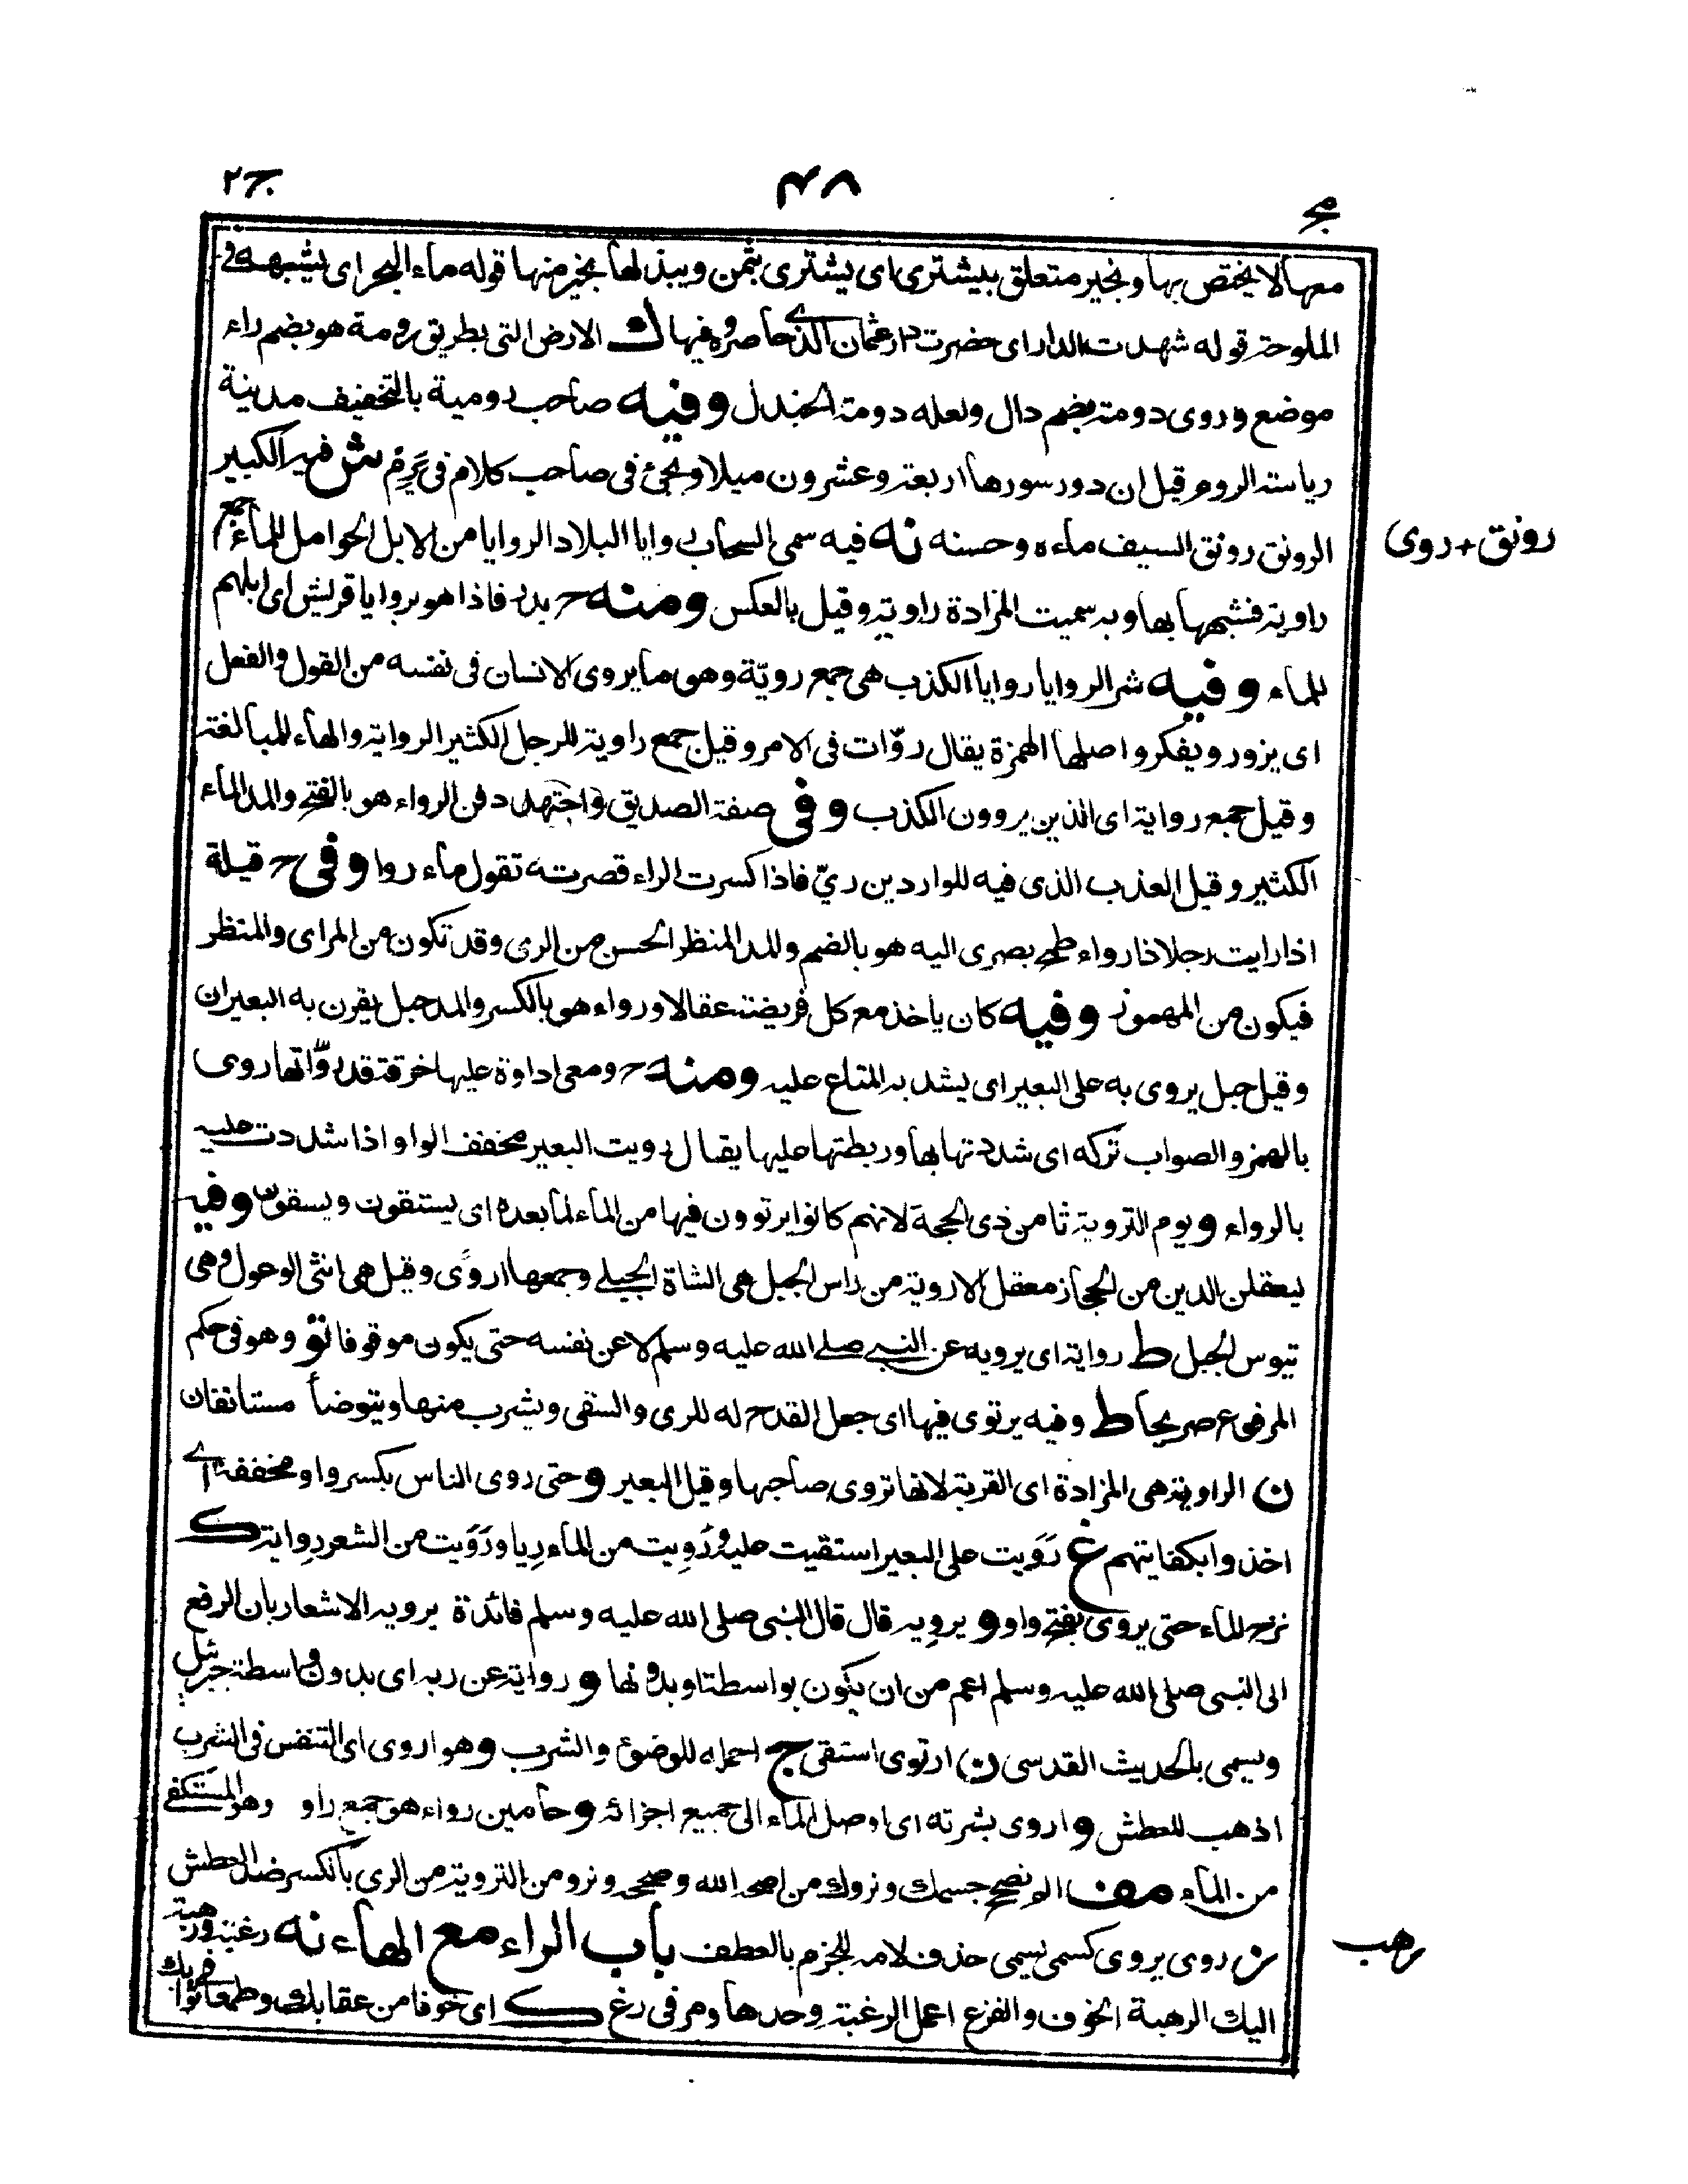 مجـ ٤٨ ج٢
معها لا يختص بها وبخير متعلق بيشترى اى يشترى بثمن ويبذلها بخير منها قوله ماء البحر اى يشبهه فى
الملوحة قوله شهدت الدار اى حضرت دار عثمان الذى حاصروه فيها ك الارض التى بطريق رومة هو بضم راء
موضع وروى دومة بضم دال ولعله دومة الجندل وفيه صاحب رومية بالتخفيف مدينة
رياسة الروم قيل ان دور سورها اربعة وعشرون ميلا ويجئ فى صاحب كلام فى يَرِمُ ش فيه الكبير
الرونق رونق السيف ماءه وحسنه نه فيه سمى السحاب روايا البلاد الروايا من الابل الحوامل للماء جمع
رونق + روى
راوية فشبهها بها وبه سميت المزادة راوية وقيل بالعكس ومنه ح بدر فاذا هو بروايا قريش اى ابلهم
للماء وفيه شر الروايا روايا الكذب هى جمع رويّة وهو ما يروى الانسان فى نفسه من القول والفعل
اى يزور ويفكر واصلها الهمزة يقال روّات فى الامر وقيل جمع راوية للرجل الكثير الرواية والهاء للمبالغة
وقيل جمع رواية اى الذين يروون الكذب وفى صفة الصديق واجتهد دفن الرواء هو بالفتح والمد الماء
الكثير وقيل العذب الذى فيه للواردين ريّ فاذا كسرت الراء قصرته تقول ماء روا وفى ح قيلة
اذا رايت رجلا ذا رواء طمح بصرى اليه هو بالضم والمد المنظر الحسن من الرى وقد تكون من المراى والمنظر
فيكون من المهموز وفيه كان ياخذ مع كل فريضة عقالا ورواء هو بالكسر والمد حبل يقرن به البعيران
وقيل حبل يروى به على البعير اى يشد به المتاع عليه ومنه ح ومعى اداوة عليها خرقة قد روّاتها روى
بالهمز والصواب تركه اى شددتها بها وربطتها عليها يقال رويت البعير مخفف الواو اذا شددت عليه
بالرواء ويوم التروية ثامن ذى الحجة لانهم كانوا يرتوون فيها من الماء لما بعده اى يستقون ويسقون وفيه
ليعقلن الدين من الحجاز معقل الاروية من راس الجبل هى الشاة الجبلى وجمعها اروًى وقيل هى انثى الوعول وهى
تيوس الجبل ط رواية اى يرويه عن النبى صلى الله عليه وسلم لا عن نفسه حتى يكون موقوفا تو وهو فى حكم
المرفوع صريحا ط وفيه يرتوى فيها اى جعل القدح له للرى والسقى ويشرب منها ويتوضأ مستانفان
ن الراوية هى المزادة اى القربة لانها تروى صاحبها وقيل البعير وحتى روى الناس بكسر واو مخففة اى
اخذوا بكفايتهم غ رَوَيت على البعير استقيت عليه ورَوِيت من الماء رِيا ورَوَيت من الشعر رِواية ك
نزح الماء حتى يروى بفتح واو و يرويه قال قال النبى صلى الله عليه وسلم فائدة يرويه الاشعار بان الرفع
الى النبى صلى الله عليه وسلم اعم من ان يكون بواسطة او بدونها و رواية عن ربه اى بدون واسطة جبرئيل
ويسمى بالحديث القدسى ن ارتوى استقى ج احمله للوضوء والشرب وهو اروى اى التنفس فى الشرب
اذهب للعطش واروى بشرته اى اوصل الماء الى جميع اجزائه وحامين رواء هو جمع راو وهو المستكفى
من الماء مف الم نصح جسمك ونروك من اصحه الله وصححه ونرو من التروية من الرى بالكسر ضد العطش
ن روى يروى كسمى يسمى حذف لامه للجزم بالعطف باب الراء مع الهاء نه رغبة ورهبة
رهب
اليك الرهبة الخوف والفزع اعمل الرغبة وحدها ومر فى رغ ك اى خوفا من عقابك وطمعا فى ثوابك